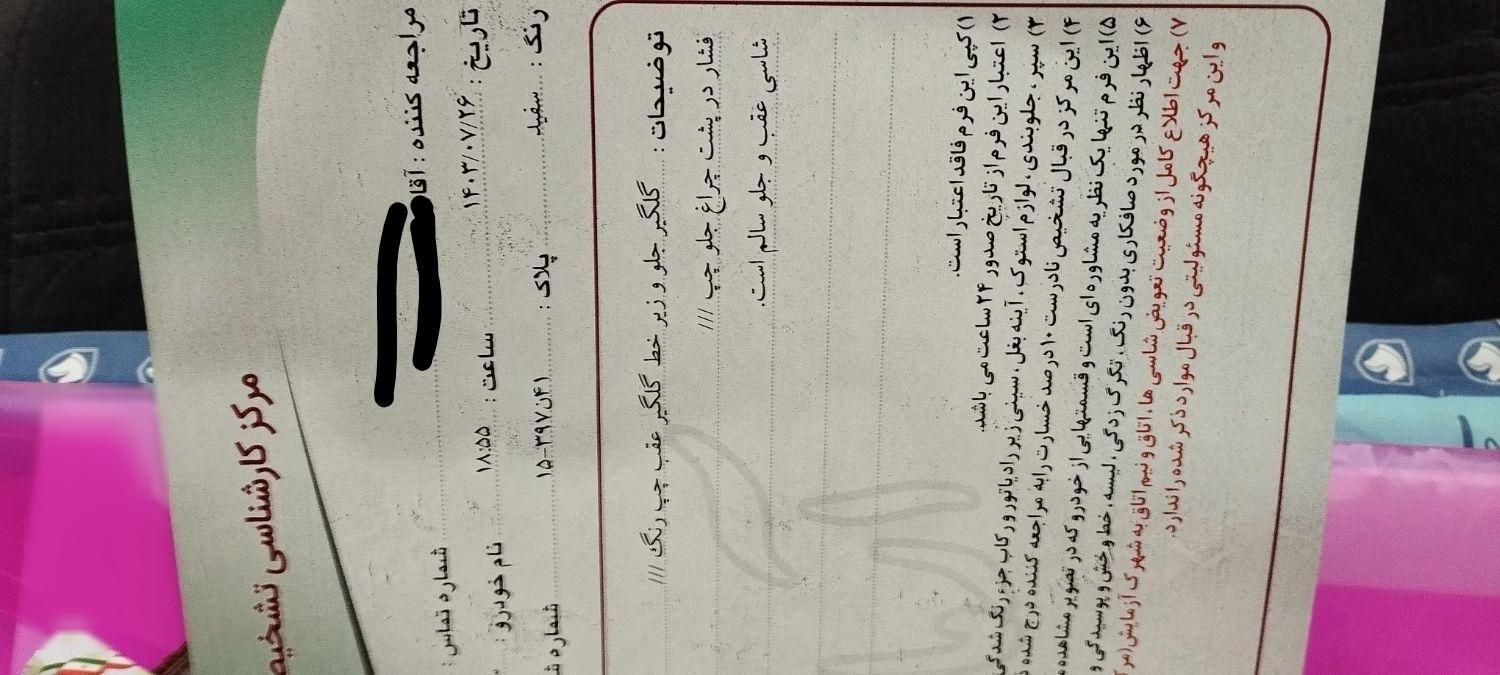 مرکز کارشناسی تشخیص
مراجعه کننده : آقا
شماره تماس :
تاریخ : ۱۴۰۳/۰۷/۲۶ ساعت : ۱۸:۵۵ نام خودرو :
رنگ : سفید پلاک : ۴۱ن۳۹۷-۱۵ شماره
توضیحات : گلگیر جلو و زیر خط گلگیر عقب چپ رنگ ///
فشار در پشت چراغ جلو چپ ///
شاسی عقب و جلو سالم است.
۱) کپی این فرم فاقد اعتبار است.
۲) اعتبار این فرم از تاریخ صدور ۲۴ ساعت می باشد.
۳) سپر ، جلوبندی ، لوازم استوک ، آینه بغل ، سینی زیر رادیاتور و رکاب جزء رنگ شدگی
۴) این مرکز در قبال تشخیص نادرست ۱۰ درصد خسارت را به مراجعه کننده درج شده
۵) این فرم تنها یک نظریه مشاوره ای است و قسمتهایی از خودرو که در تصویر مشاهده
۶) اظهار نظر در مورد صافکاری بدون رنگ ، تگرگ زدگی ، لیسه ، خط و خش و پوسیدگی و
۷) جهت اطلاع کامل از وضعیت تعویض شاسی ها ، اتاق و نیم اتاق به شهرک آزمایش (مرک
و این مرکز هیچگونه مسئولیتی در قبال موارد ذکر شده را ندارد.